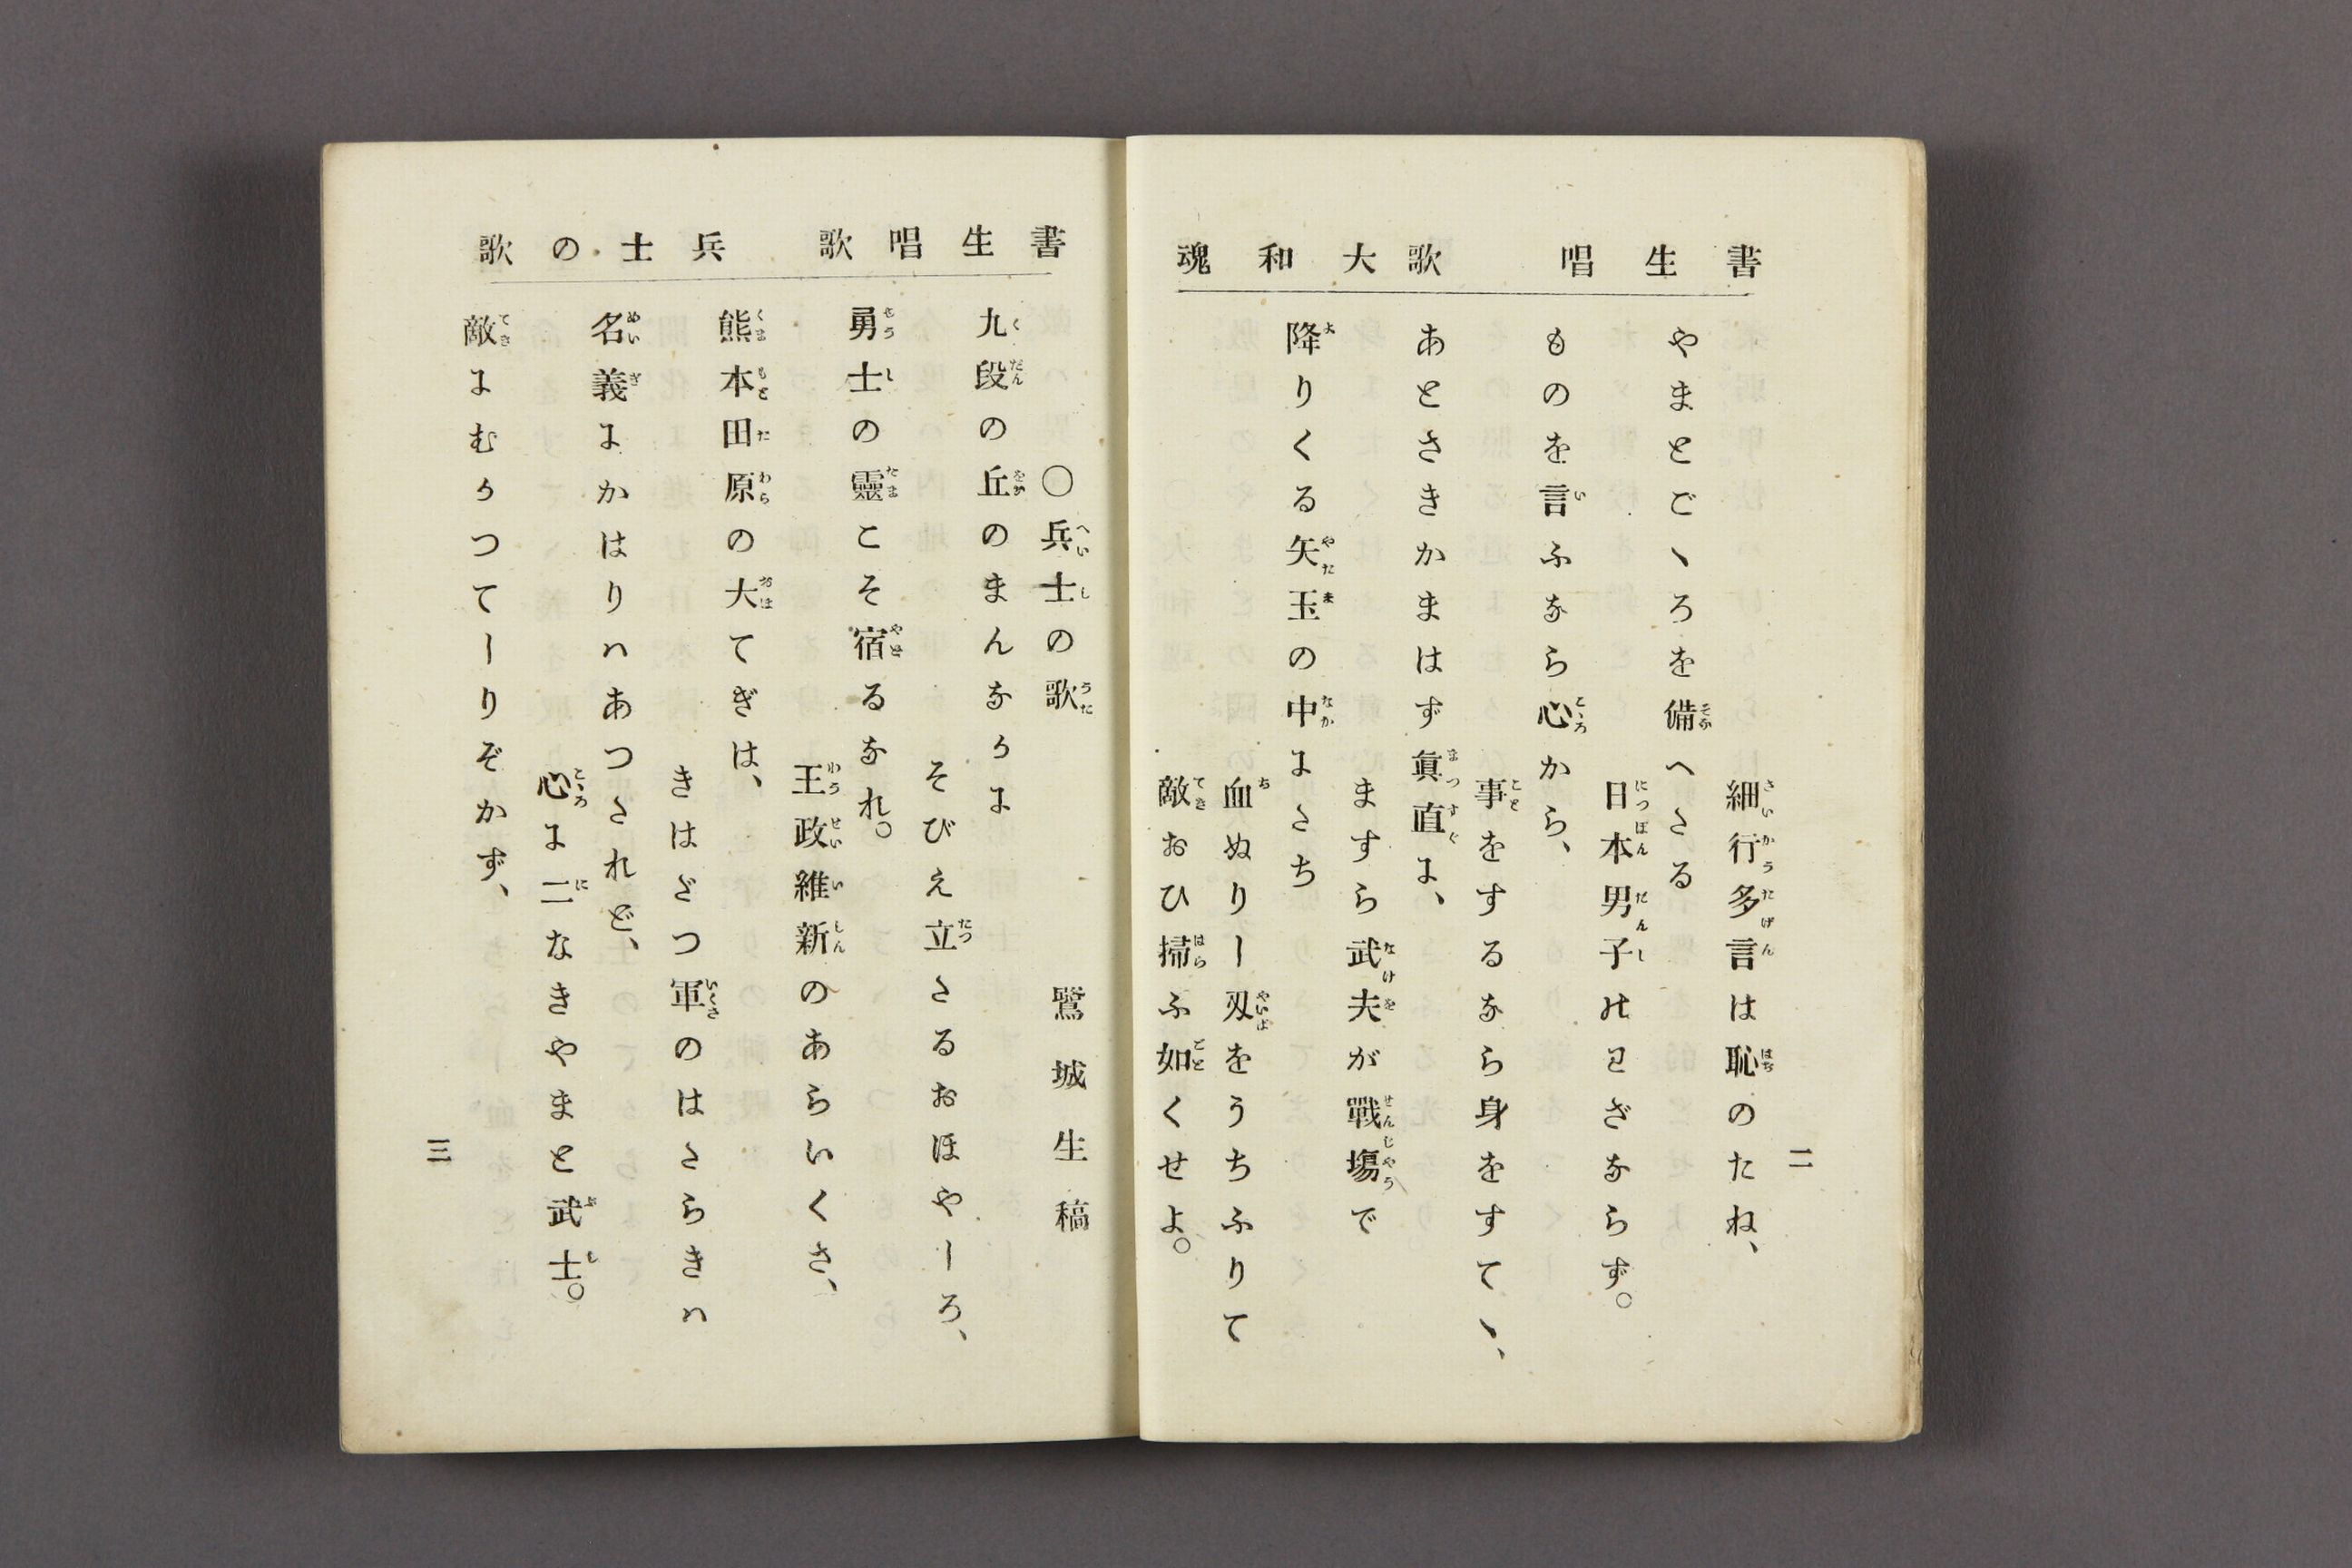 書生唱歌 大和魂
二
細行多言は恥のたね、
やまとごゝろを備へたる
日本男子のわざならず。
ものを言ふなら心から、
事をするなら身をすてゝ、
あとさきかまはず眞直に、
ますら武夫が戰塲で
降りくる矢玉の中にたち
血ぬりし刄をうちふりて
敵おひ掃ふ如くせよ。
書生唱歌 兵士の歌
○兵士の歌 鷺城生稿
九段の丘のまんなかに
そびえ立たるおほやしろ、
勇士の靈こそ宿るなれ。
王政維新のあらいくさ、
熊本田原の大てぎは、
きはだつ軍のはたらきハ
名義にかはりハあつたれど、
心に二なきやまと武士。
敵にむかつてしりぞかず、
三